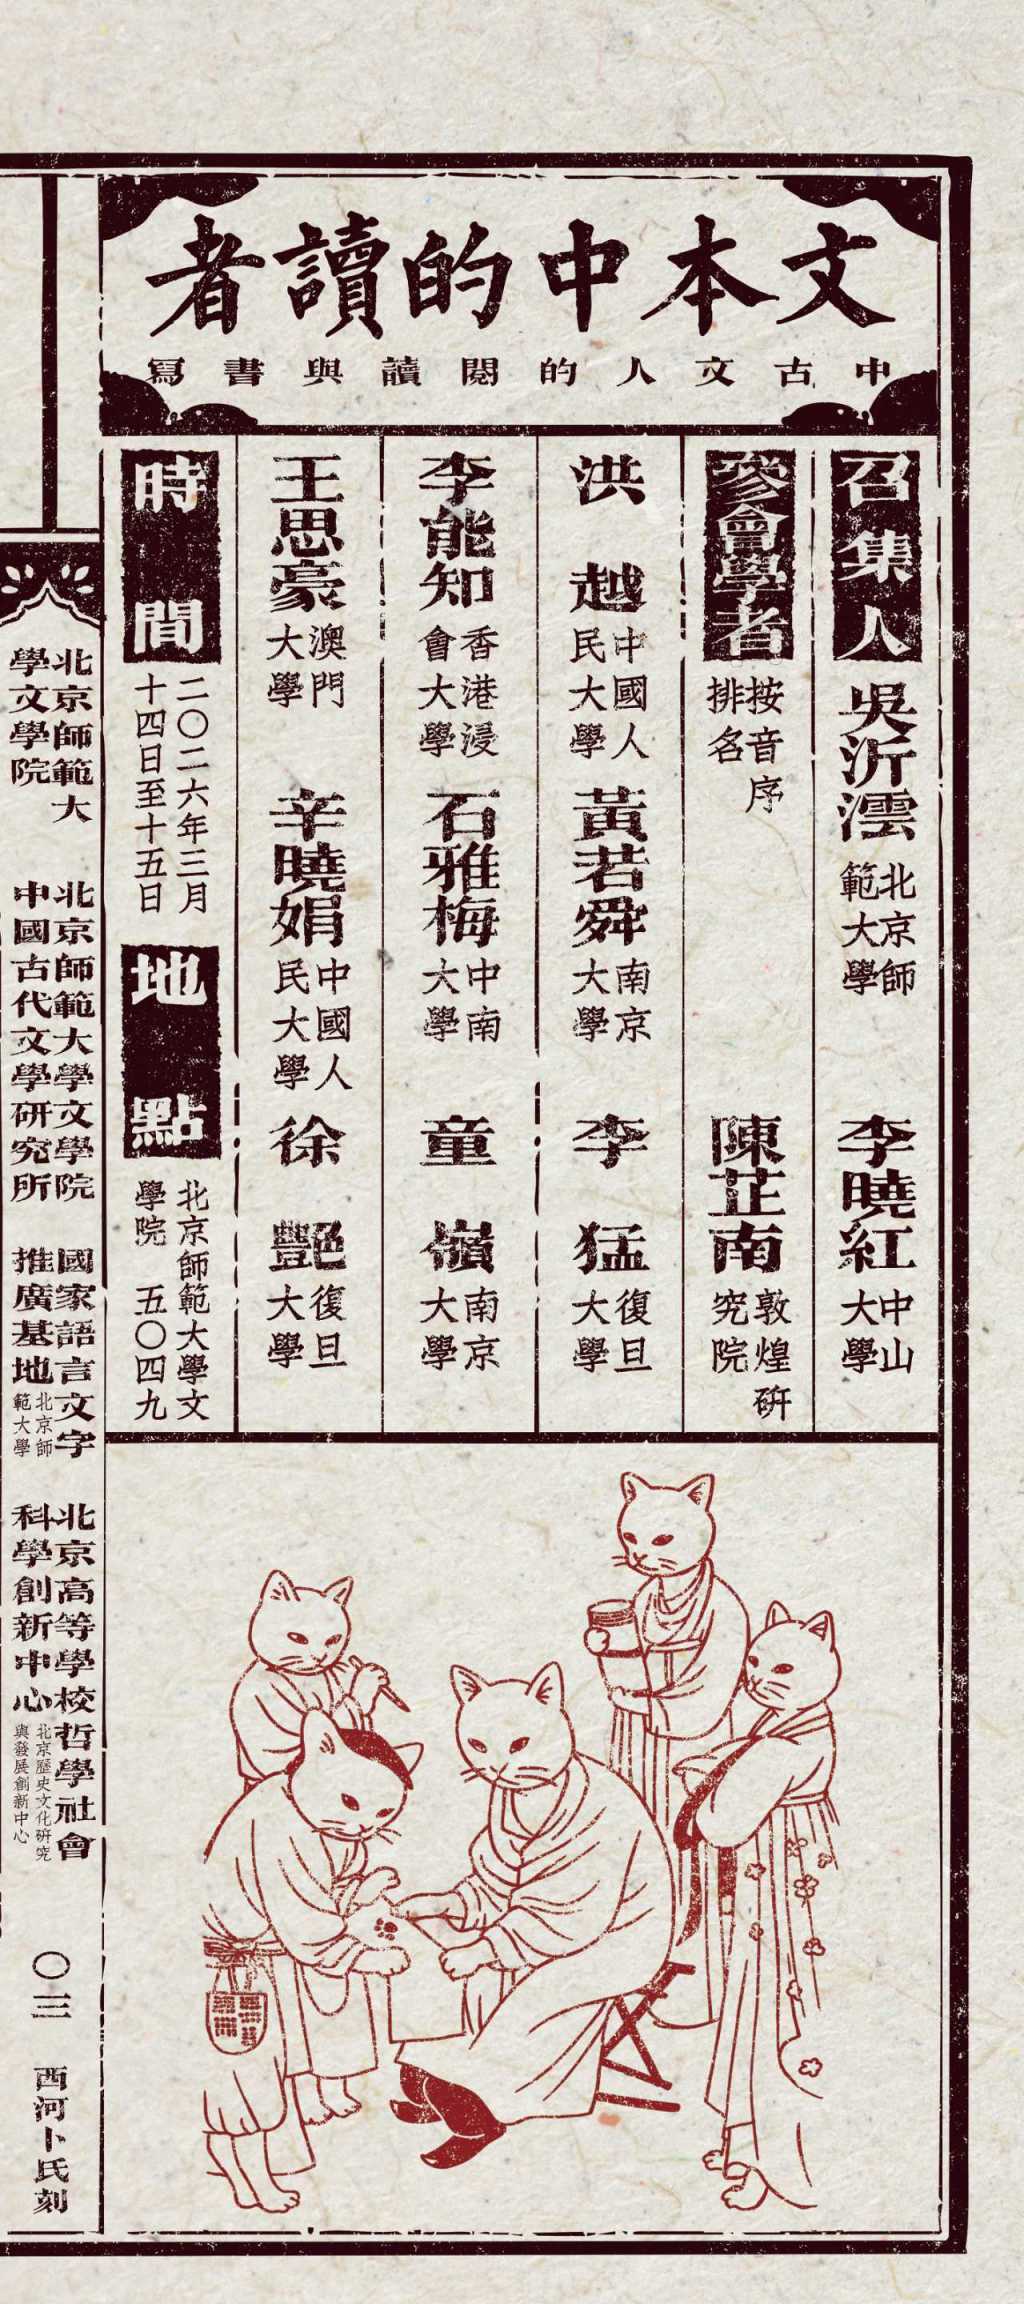 文本中的讀者
中古文人的閱讀與書寫
召集人
吳沂澐
北京師
範大學
李曉紅
中山
大學
參會學者
按音序
排名
陳芷南
敦煌研
究院
洪越
中國人
民大學
黃若舜
南京
大學
李猛
復旦
大學
李能知
香港浸
會大學
石雅梅
中南
大學
童嶺
南京
大學
王思豪
澳門
大學
辛曉娟
中國人
民大學
徐艷
復旦
大學
時間
二〇二六年三月
十四日至十五日
地點
北京師範大學文
學院 五〇四九
北京師範大
學文學院
北京師範大學文學院
中國古代文學研究所
國家語言文字
推廣基地
北京師
範大學
北京高等學校哲學社會
科學創新中心
北京歷史文化研究
與發展創新中心
〇三
西河卜氏刻